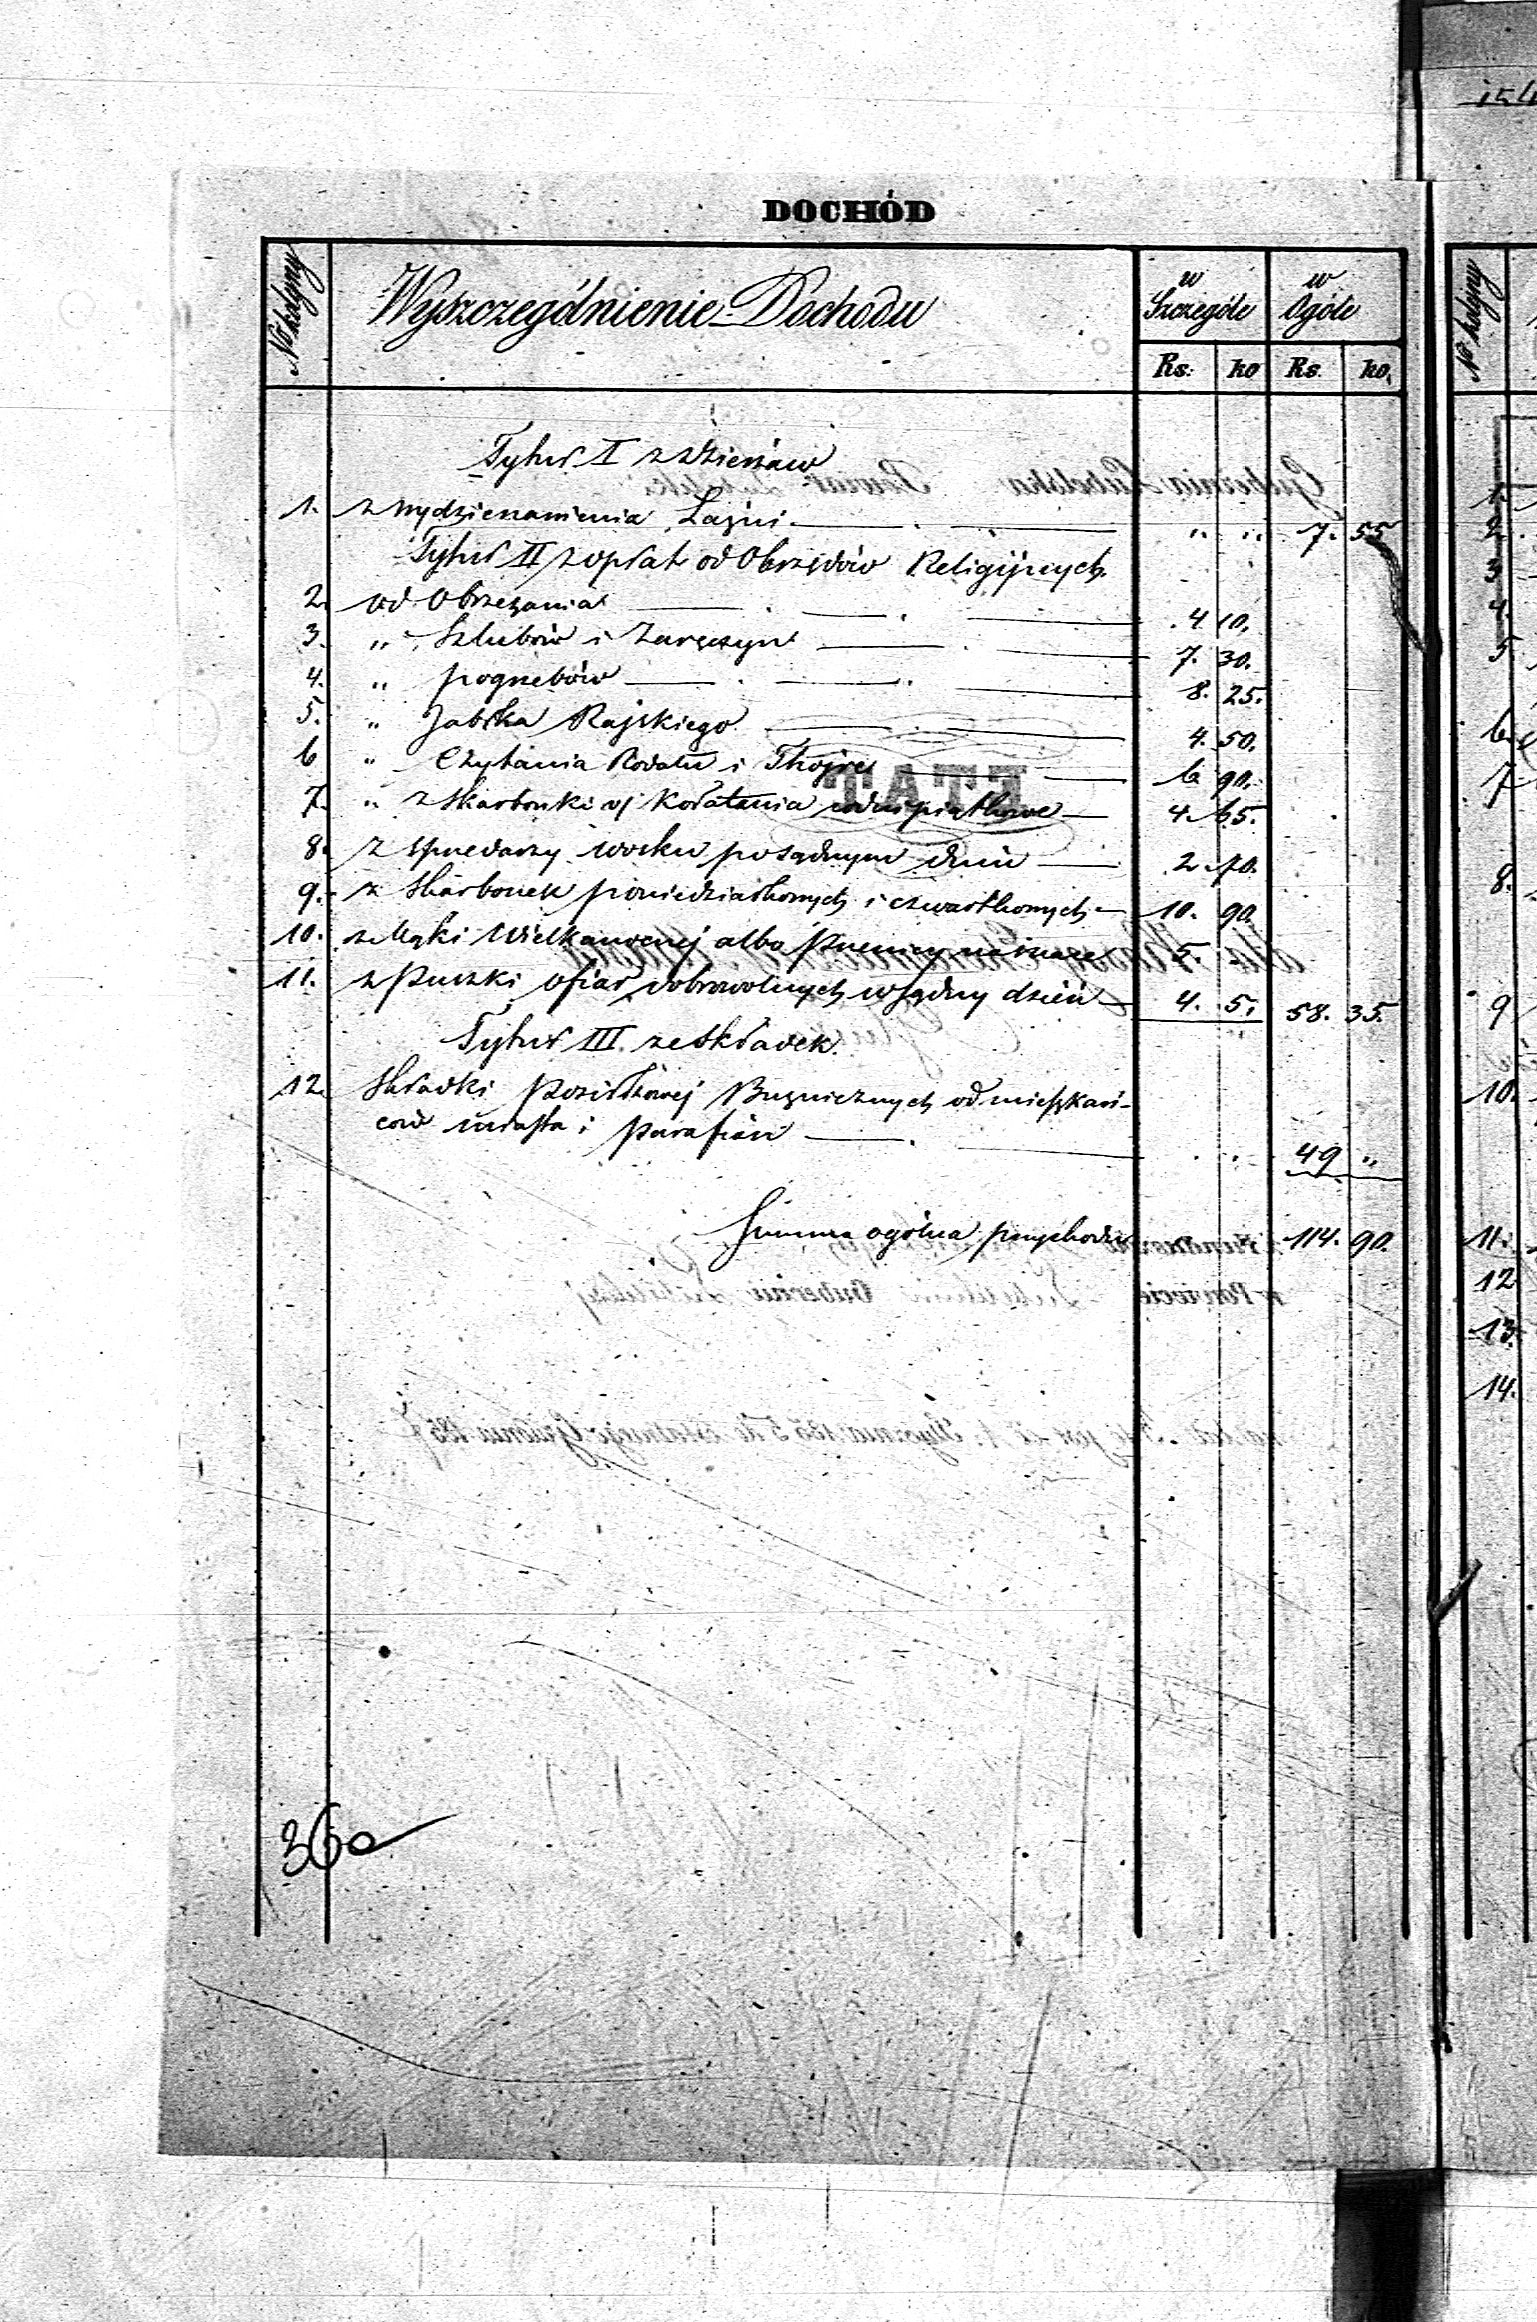 DOCHÓD
No kolejny
Wyszczególnienie Dochodu
w Szczególe
w Ogóle
Rs. ko Rs. ko.
Tytuł I z dzierżaw
1. z wydzierżawienia Łaźni „ „ 7. 55
Tytuł II z opłat od Obrzędów Religijnych.
2. od Obrzezania 4 10.
3. „ Szlubów i Zaręczyn 7. 30.
4. „ pogrzebów 8. 25.
5. „ Jabłka Rajskiego 4. 50.
6 „ Czytania Rodału i Thojre 6 90.
7. „ z skarbonki od Kołatania w dni piątkowe 4. 65.
8. z sprzedarzy wosku po sądnym dniu 2. 70.
9. z skarbonek poniedziałkowych i czwartkowych 10. 90.
10. z Mąki Wielkanocnej albo pszenicy na mace 5.
11. z Puszki ofiar dobrowolnych w sądny dzień 4. 5. 58. 35.
Tytuł III ze Składek.
12. Składki Posiłkowej Bużnicznych od mieszkań-
ców miasta i parafian 49 „
Summa ogólna przychodu 114. 90.
360
No kolejny
1.
2.
3
4.
5
6.
7
8.
9
10.
11.
12
13.
14.